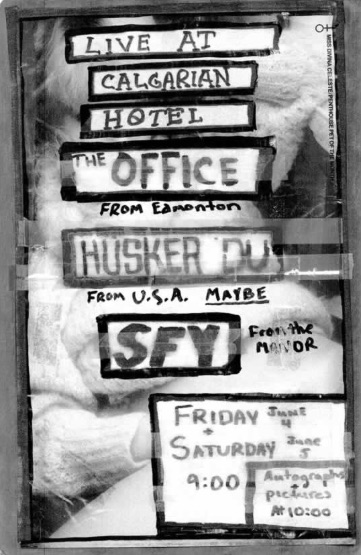 LIVE AT
CALGARIAN
HOTEL
THE OFFICE
FROM Edmonton
HUSKER DU
FROM U.S.A. MAYBE
SFY From the
MANOR
FRIDAY JUNE 4
+
SATURDAY June 5
9:00
Autographs
+
pictures
At 10:00
PENTHOUSE PET OF THE